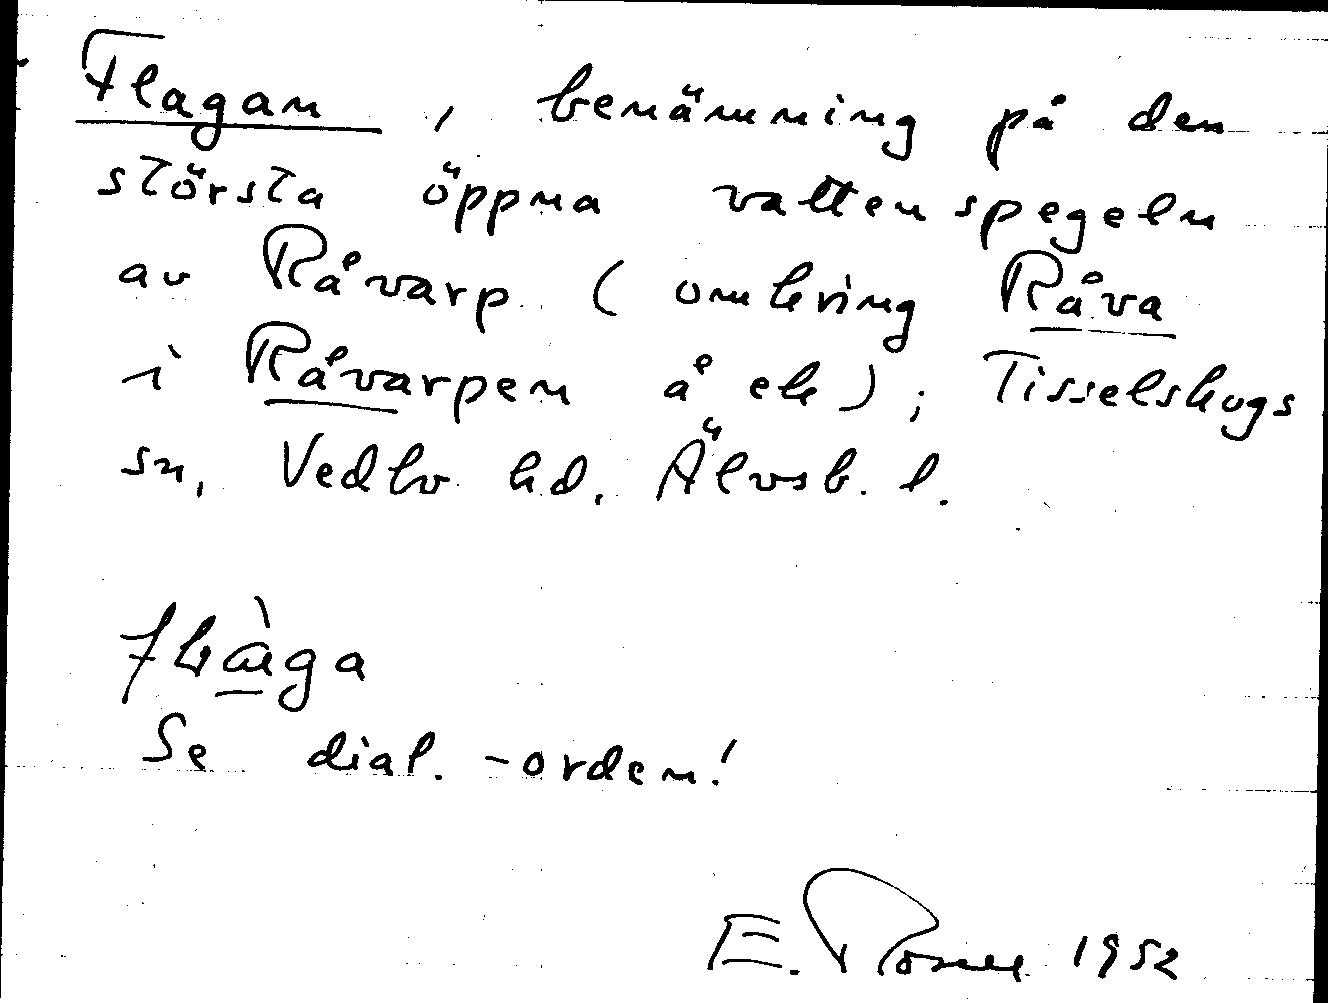 Flagan, benämning på den
största öppna vattenspegeln
av Råvarp (omkring Råva
i Råvarpen å ek); Tisselskogs
sn, Vedbo hd. Älvsb. l.
Se dial. -orden!
E. 1952